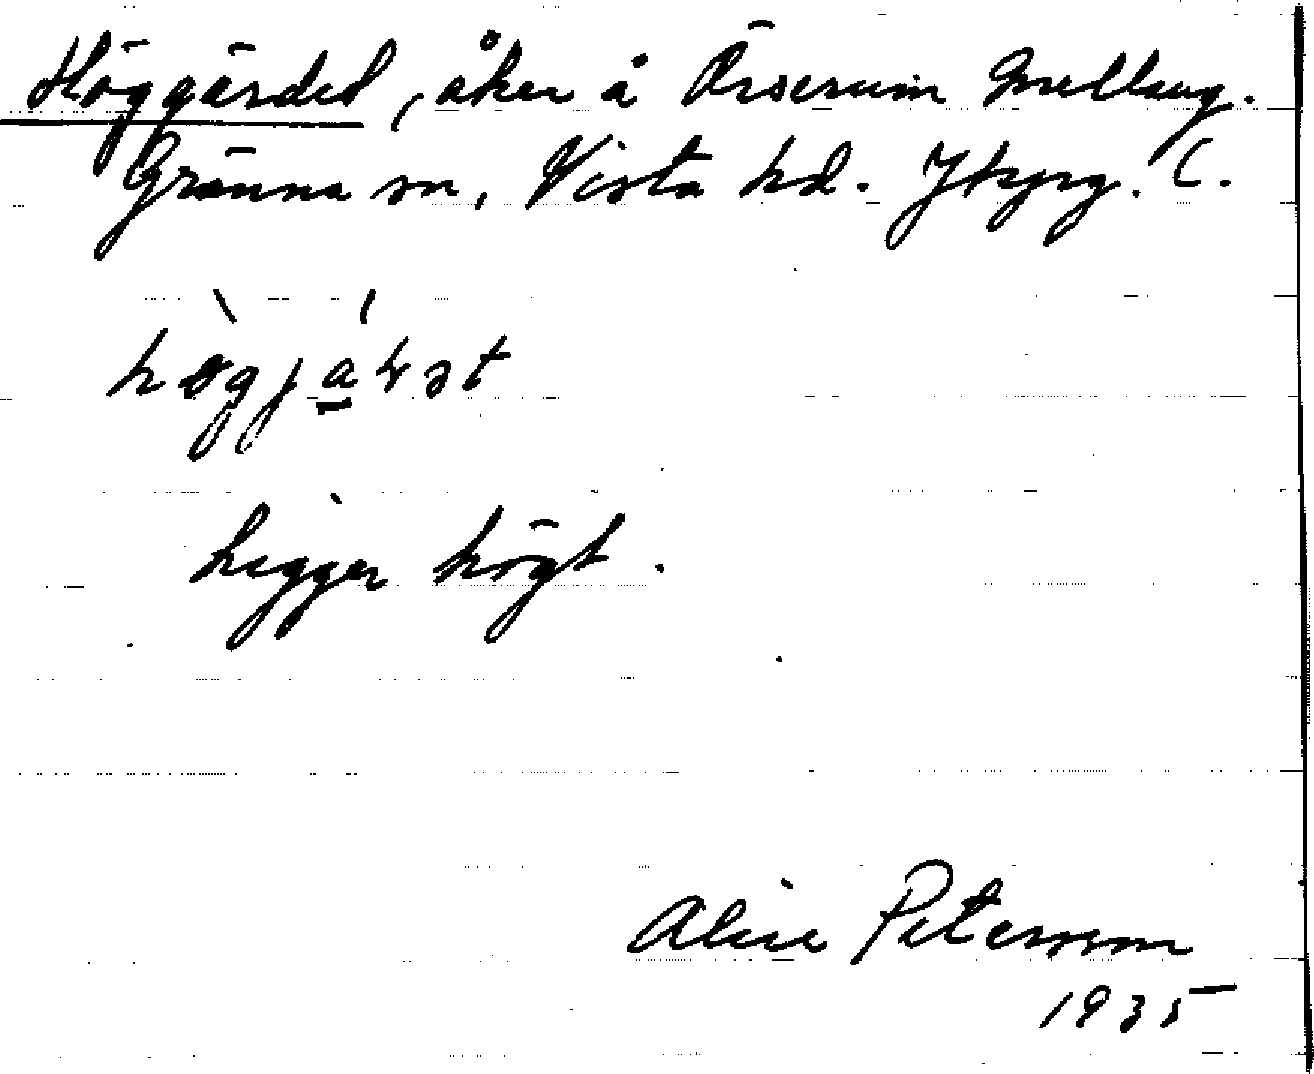 Höggärdet, åker å Örserum Mellang.
Gränna sn, Vista hd. Jkpg.
ligger högt.
Alice Petersson
1935